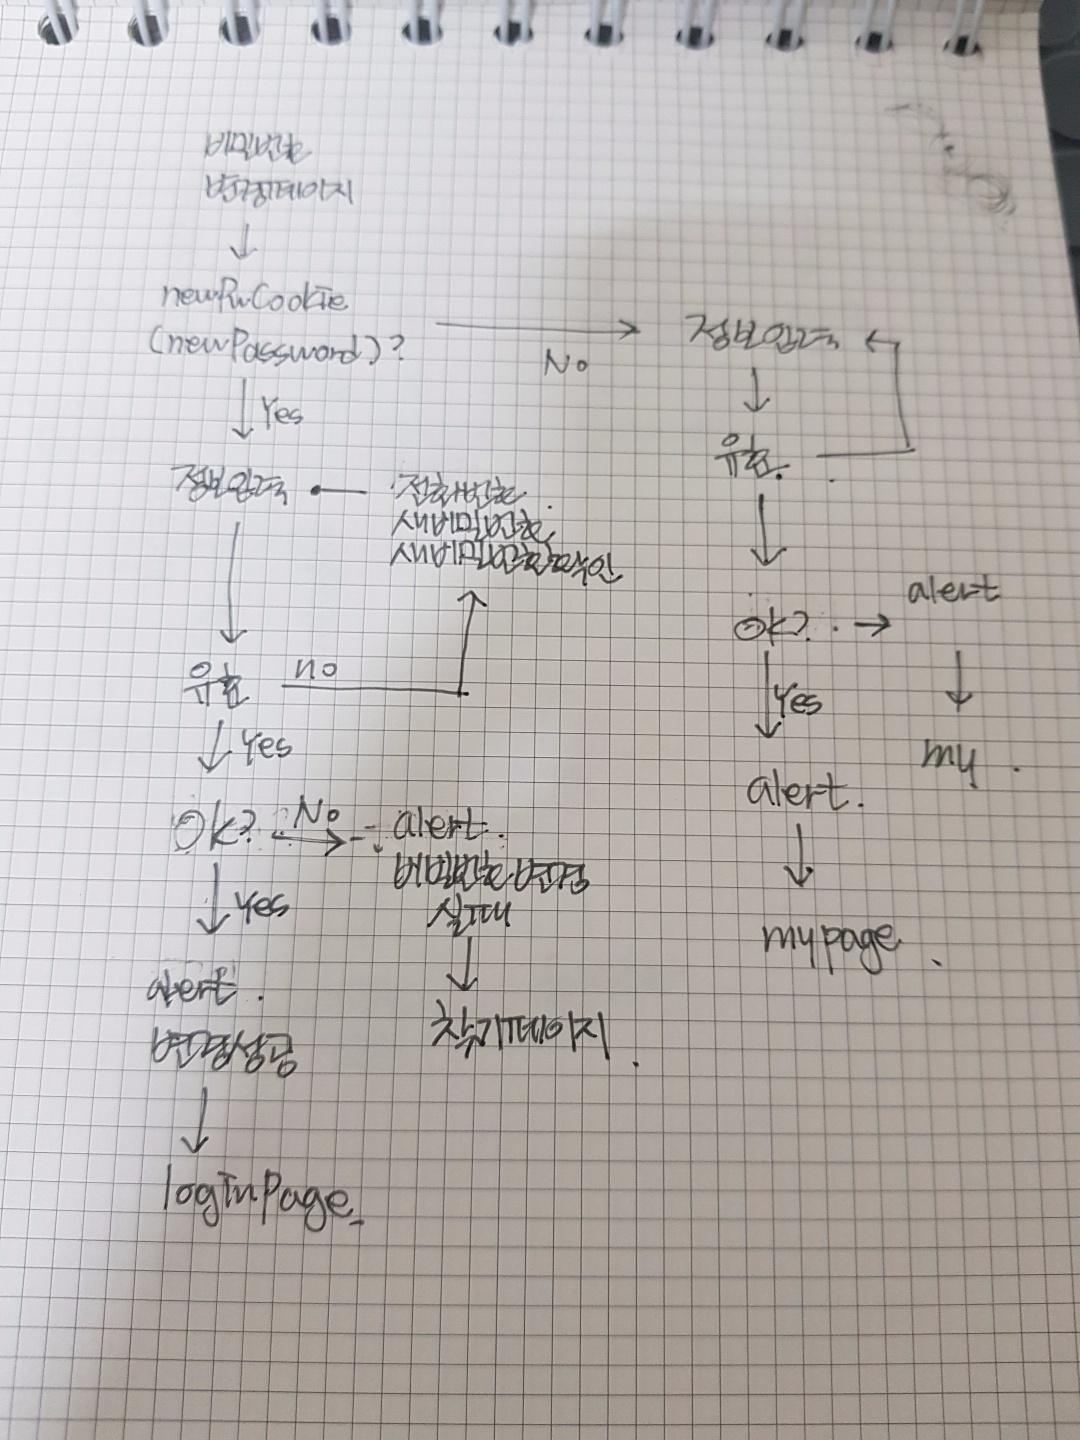 비밀번호
변경페이지
newPwCookie
(newPassword)?
No
Yes
정보입력
전화번호
새비밀번호
새비밀번호확인
유효
no
Yes
OK?
No
alert.
비밀번호변경
실패
찾기페이지
Yes
alert.
변경성공
loginPage
정보입력
유효.
OK?
alert
my
Yes
alert.
mypage